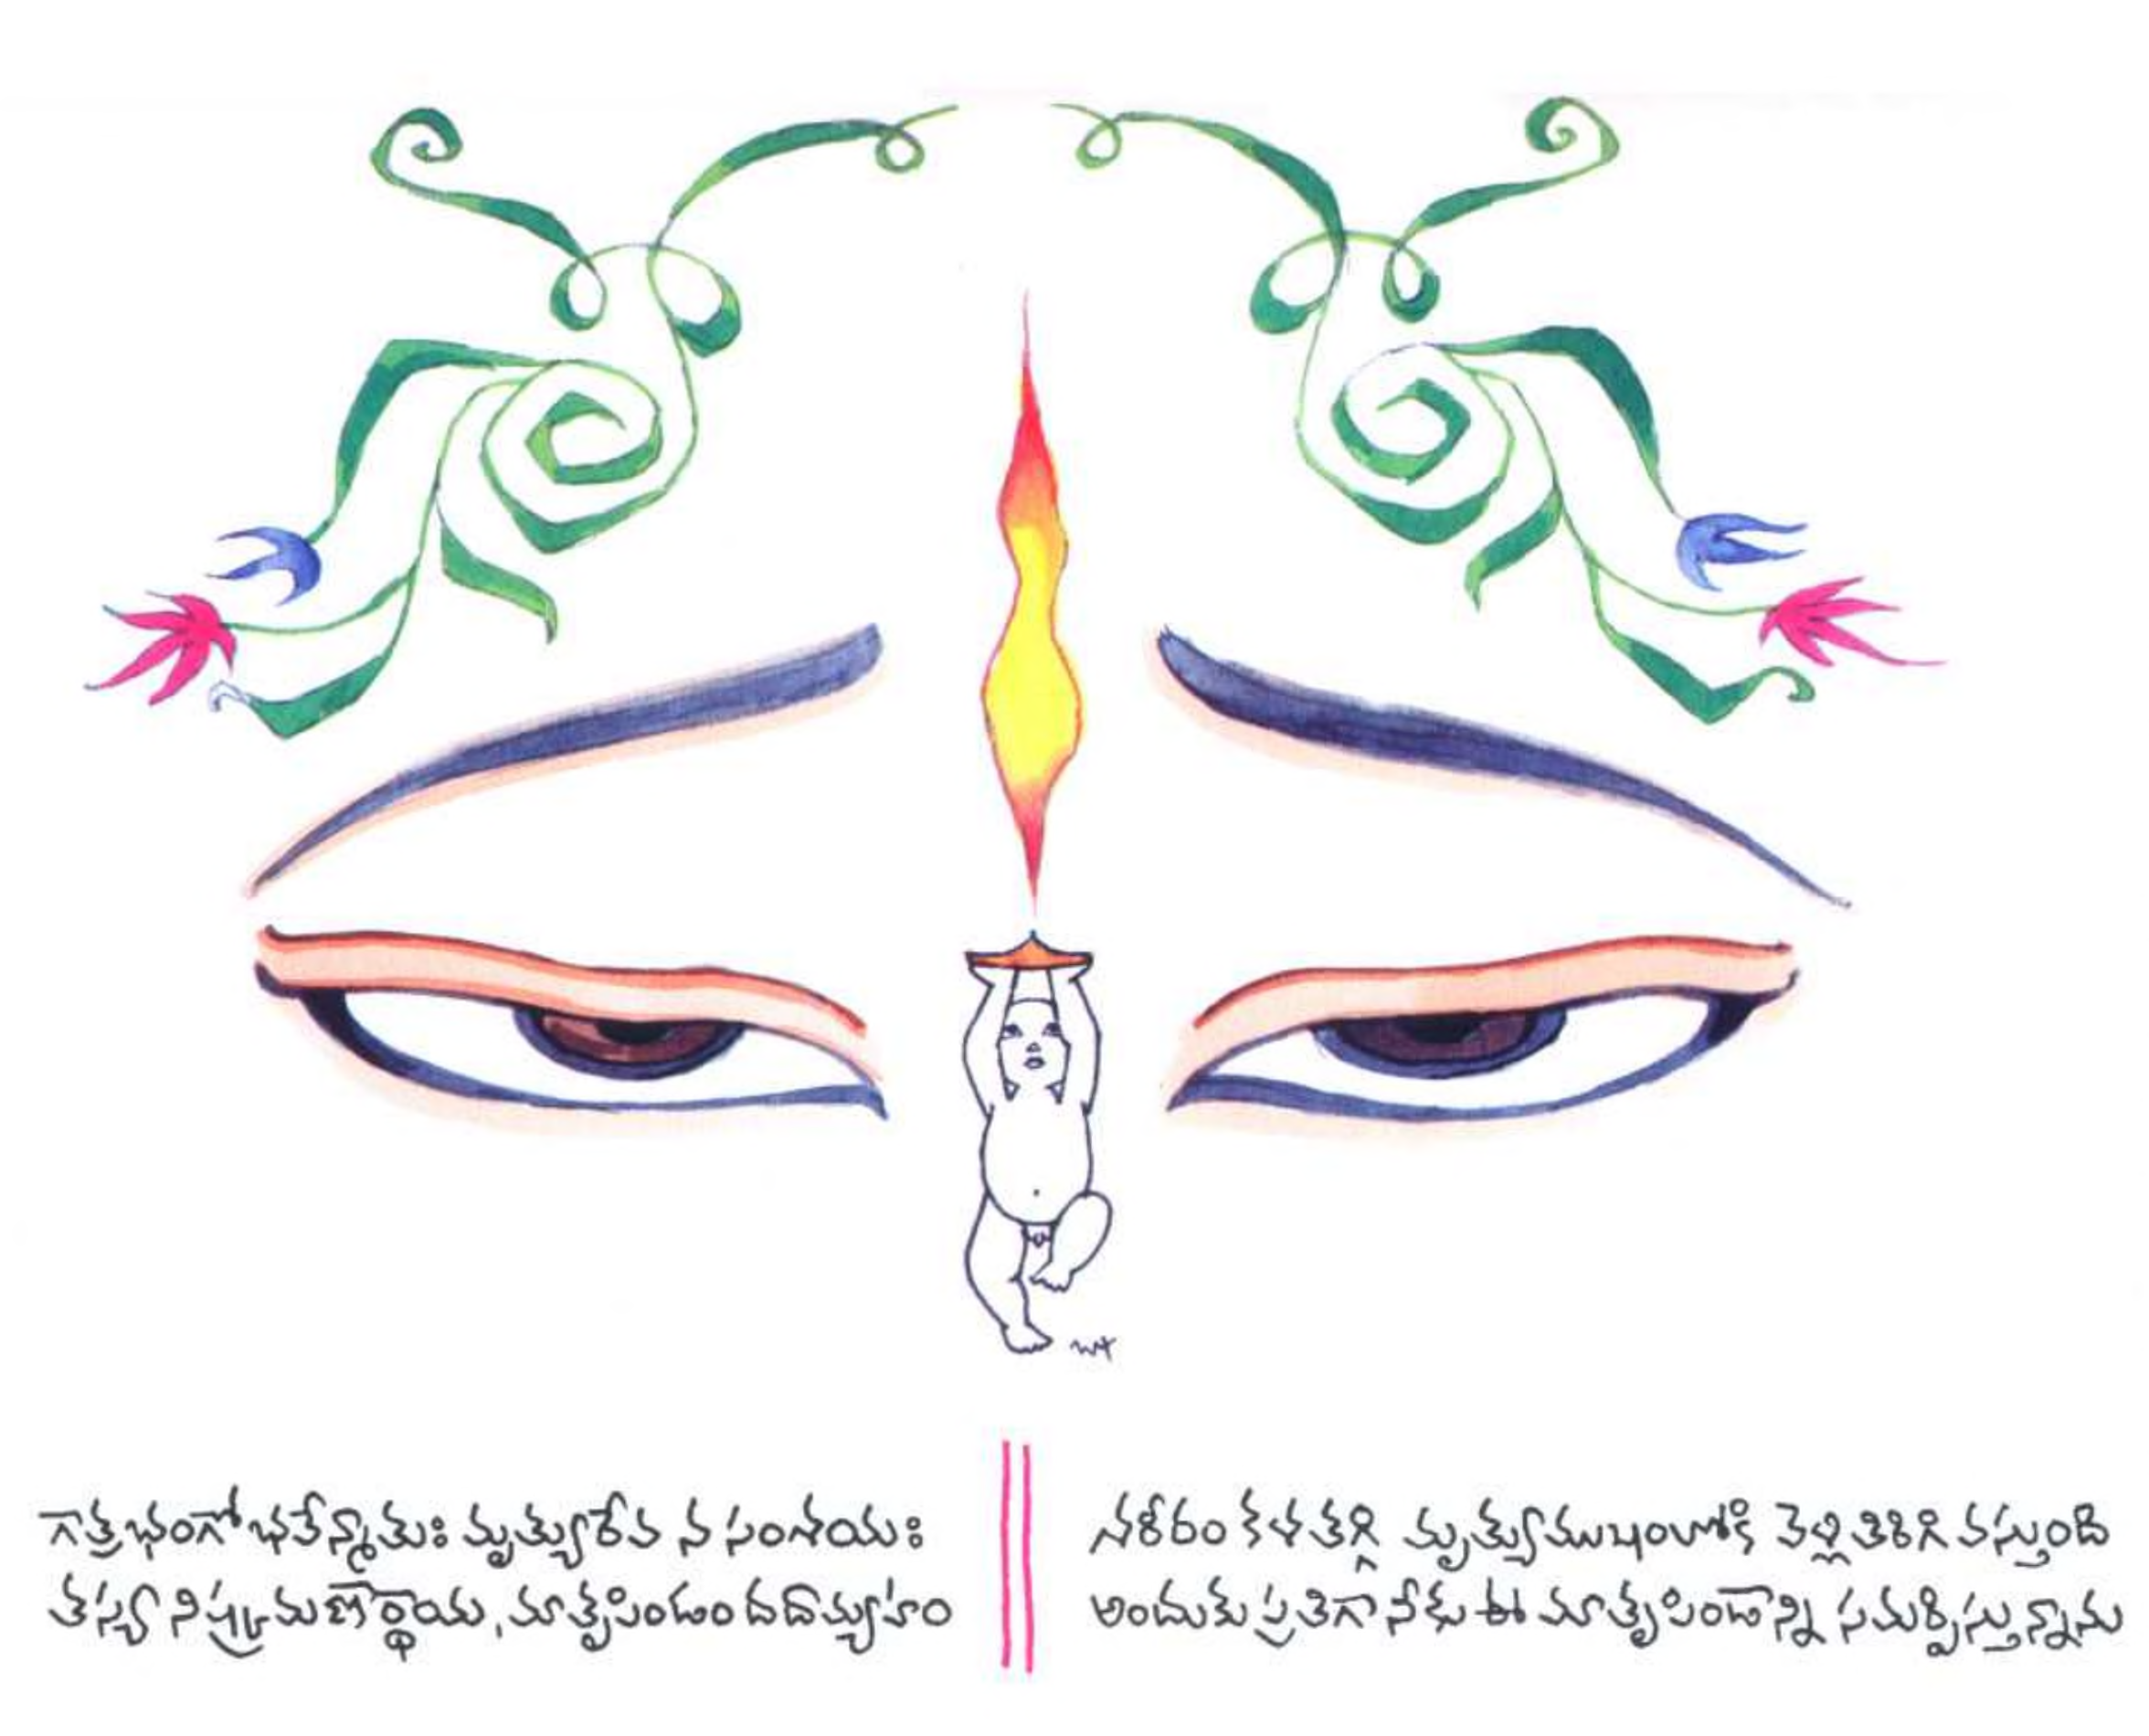 గాత్రభంగో భవేన్మాతుః మృత్యురేవ న సంశయః
తస్యా నిష్క్రమణార్థాయ, మాతృపిండం దదామ్యహం
శరీరం కళ తగ్గి మృత్యుముఖంలోకి వెళ్లి తిరిగి వస్తుంది
అందుకు ప్రతిగా నేను ఈ మాతృపిండాన్ని సమర్పిస్తున్నాను